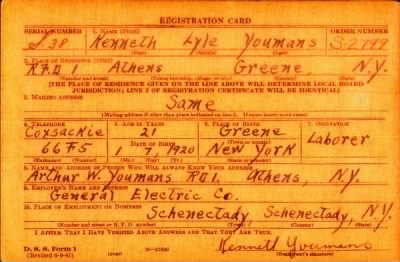 REGISTRATION CARD
SERIAL NUMBER 1. NAME (Print) ORDER NUMBER
S 38 Kenneth Lyle Youmans S-2799
(First) (Middle) (Last)
2. PLACE OF RESIDENCE (Print)
R.F.D 1 Athens Greene N.Y.
(Number and street) (Town, township, village, or city) (County) (State)
[THE PLACE OF RESIDENCE GIVEN ON THE LINE ABOVE WILL DETERMINE LOCAL BOARD
JURISDICTION; LINE 2 OF REGISTRATION CERTIFICATE WILL BE IDENTICAL]
3. MAILING ADDRESS
Same
[Mailing address if other than place indicated on line 2. If same insert word same]
4. TELEPHONE 5. AGE IN YEARS 6. PLACE OF BIRTH 7. OCCUPATION
Coxsackie 21 Greene Laborer
DATE OF BIRTH (Town or county)
66F5 1 7, 1920 New York
(Exchange) (Number) (Mo.) (Day) (Yr.) (State or country)
8. NAME AND ADDRESS OF PERSON WHO WILL ALWAYS KNOW YOUR ADDRESS
Arthur W. Youmans Athens, N.Y.
9. EMPLOYER'S NAME AND ADDRESS
General Electric Co.
10. PLACE OF EMPLOYMENT OR BUSINESS
Schenectady, Schenectady, N.Y.
(Number and street or R. F. D. number) (Town) (County) (State)
I AFFIRM THAT I HAVE VERIFIED ABOVE ANSWERS AND THAT THEY ARE TRUE.
D. S. S. Form 1
(Revised 6-9-41) (over)
Kenneth Youmans